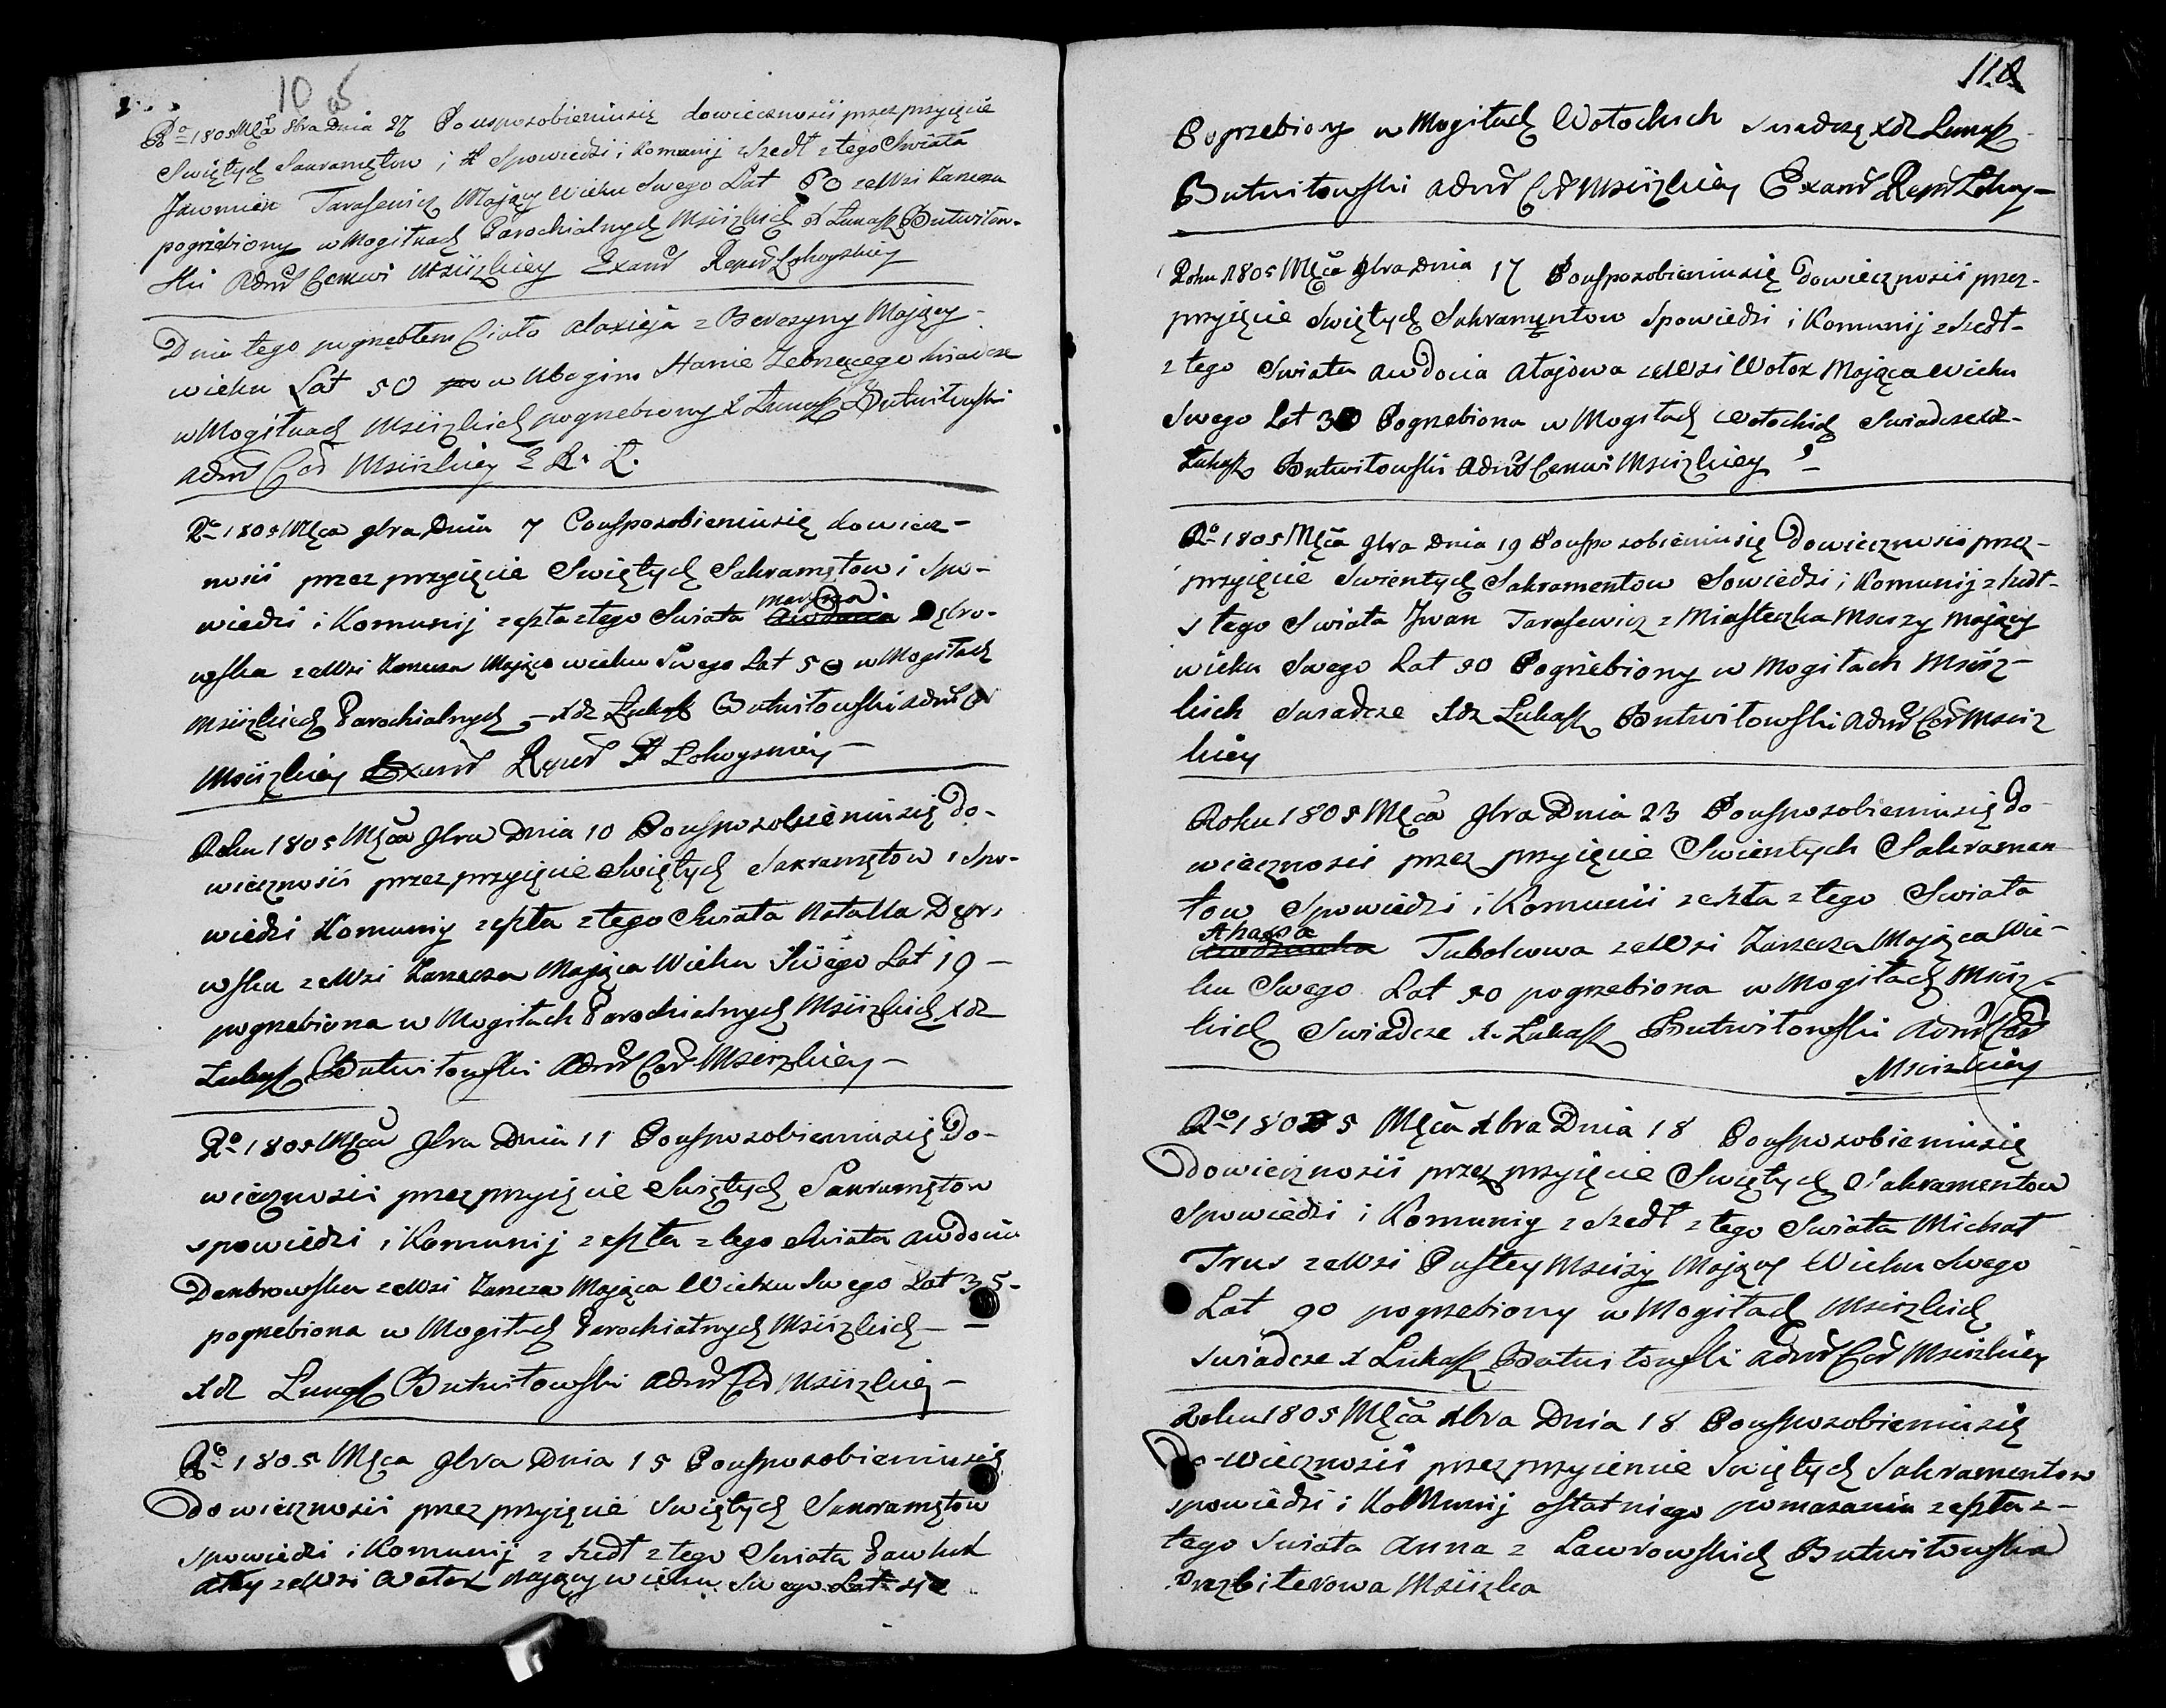 10
Rº 1805 Męca 8bra Dnia 27 Pouspozobieniusię dowiecznosii przez przyięcie
Swiętych Sakramętow i Spowiedzi i Komunij zszedł z tego Swiata
Tarasewicz Mający Wieku Swego Lat zeWsi
pogrzebiony w Mogiłkach Parochialnych Msciżkich X Łukasz Butwiłow-
ski Admr Cerkwi Msciżkiey Exand Łohoyskiey
Dnia tego pogrzebłem Ciało Alaxieja z Berezyny Mający
wieku Lat 50 w Ubogim Stanie Żebrzącego Swiadcze
w Mogiłkach Msciżkich pogrzebiony X Łukasz Butwiłowski
Admr Msciżkiey E R. Ł.
Rº 1805 Męca 9bra Dnia 7 Pouspozobieniusię dowiecz-
nosii przez przyięcie Swiętych Sakramętow i Spo-
wiedzi i Komunij zeszła z tego Swiata
wska zeWsi Mająca wieku Swego Lat 50 w Mogiłach
Msciżkich Parochialnych – Xdz Łukasz Butwiłowski Admr
Msciżkiey Exand Łohoyskiey –
Roku 1805 Męca 9bra Dnia 10 Pouspozobieniusię Do-
wiecznosii przez przyięcie Swiętych Sakramętow i Spo-
wiedzi Komuniy zeszła z tego Swiata Natalla
wska zeWsi Mająca Wieku Swego Lat 19 –
pogrzebiona w Mogiłach Parochialnych Msciżkich Xdz
Łukasz Butwiłowski Admr Msciżkiey –
Rº 1805 Męca 9bra Dnia 11 Pouspozobieniusię Do-
wiecznosii przez przyięcie Swiętych Sakramętow
spowiedzi i Komunij zeszła z tego Swiata Awdocia
Dembrowska zeWsi Mająca Wieku Swego Lat 35 –
pogrzebiona w Mogiłach Parochialnych Msciżkich –
Xdz Łukasz Butwiłowski Admr Msciżkiey –
Rº 1805 Męca 9bra Dnia 15 Pouspozobieniusię
Dowiecznosii przez przyięcie Swiętych Sakramętow
spowiedzi i Komunij zszedł z tego Swiata Pawluk
zeWsi Wołok Mający wieku Swego Lat
Pogrzebiony w Mogiłach Wołockich Swiadczę Xdz Łukasz
Butwiłowski Admr Msciżkiey Exand Łohoy –
Roku 1805 Męca 9bra Dnia 17 Pouspozobieniusię Dowiecznosii przez-
przyięcie Swiętych Sakramęntow Spowiedzi i Komunij zszedł-
z tego Swiata Awdocia Atajowa zeWsi Wołok Mająca Wieku
Swego Lat Pogrzebiona w Mogiłach Wołockich SwiadczeXdz-
Łukasz Butwiłowski Admr Cerkwi Msciżkiey
Rº 1805 Męca 9bra Dnia 19 Pouspozobieniusię Dowiecznosii przez-
przyięcie Swientych Sakramentow Sowiedzi i Komunij zszedł-
s tego Swiata Jwan Tarasewicz z Miasteczka Msciży Mający
wieku Swego Lat 50 Pogrzebiony w Mogiłach Msciż-
kich Swiadcze Xdz Łukasz Butwiłowski Admr Msciż
kiey
Roku 1805 Męca 9bra Dnia 23 Pouspozobieniusię Do-
wiecznosii przez przyięcie Swientych Sakramen
tow Spowiedzi i Komunii zeszła z tego Swiata
Ahapa
Tubolcowa zeWsi Mająca Wie-
ku Swego Lat 50 pogrzebiona w Mogiłach Msciż-
kich Swiadcze X. Łukasz Butwiłowski Admr
Msciżkiey
Rº 1805 Męca Xbra Dnia 18 Pouspozobieniusię
Dowiecznosii przez przyięcie Swiętych Sakramentow
Spowiedzi i Komuniy zszedł z tego Swiata Michał
Trus zeWsi Pustey Msciży Mający Wieku Swego
Lat 90 pogrzebiony w Mogiłach Msciżkich
Swiadcze X Łukasz Butwiłowski Admr Msciżkiey
Roku 1805 Męca Xbra Dnia 18 Pouspozobieniusię
Do-wiecznosii przez przyiencie Swiętych Sakramentow
spowiedzi i KoMMunij ostatniego pomazania zeszła z-
tego Swiata Anna z Lawrowskich Butwiłowska
Prezbiterowa Msciżka